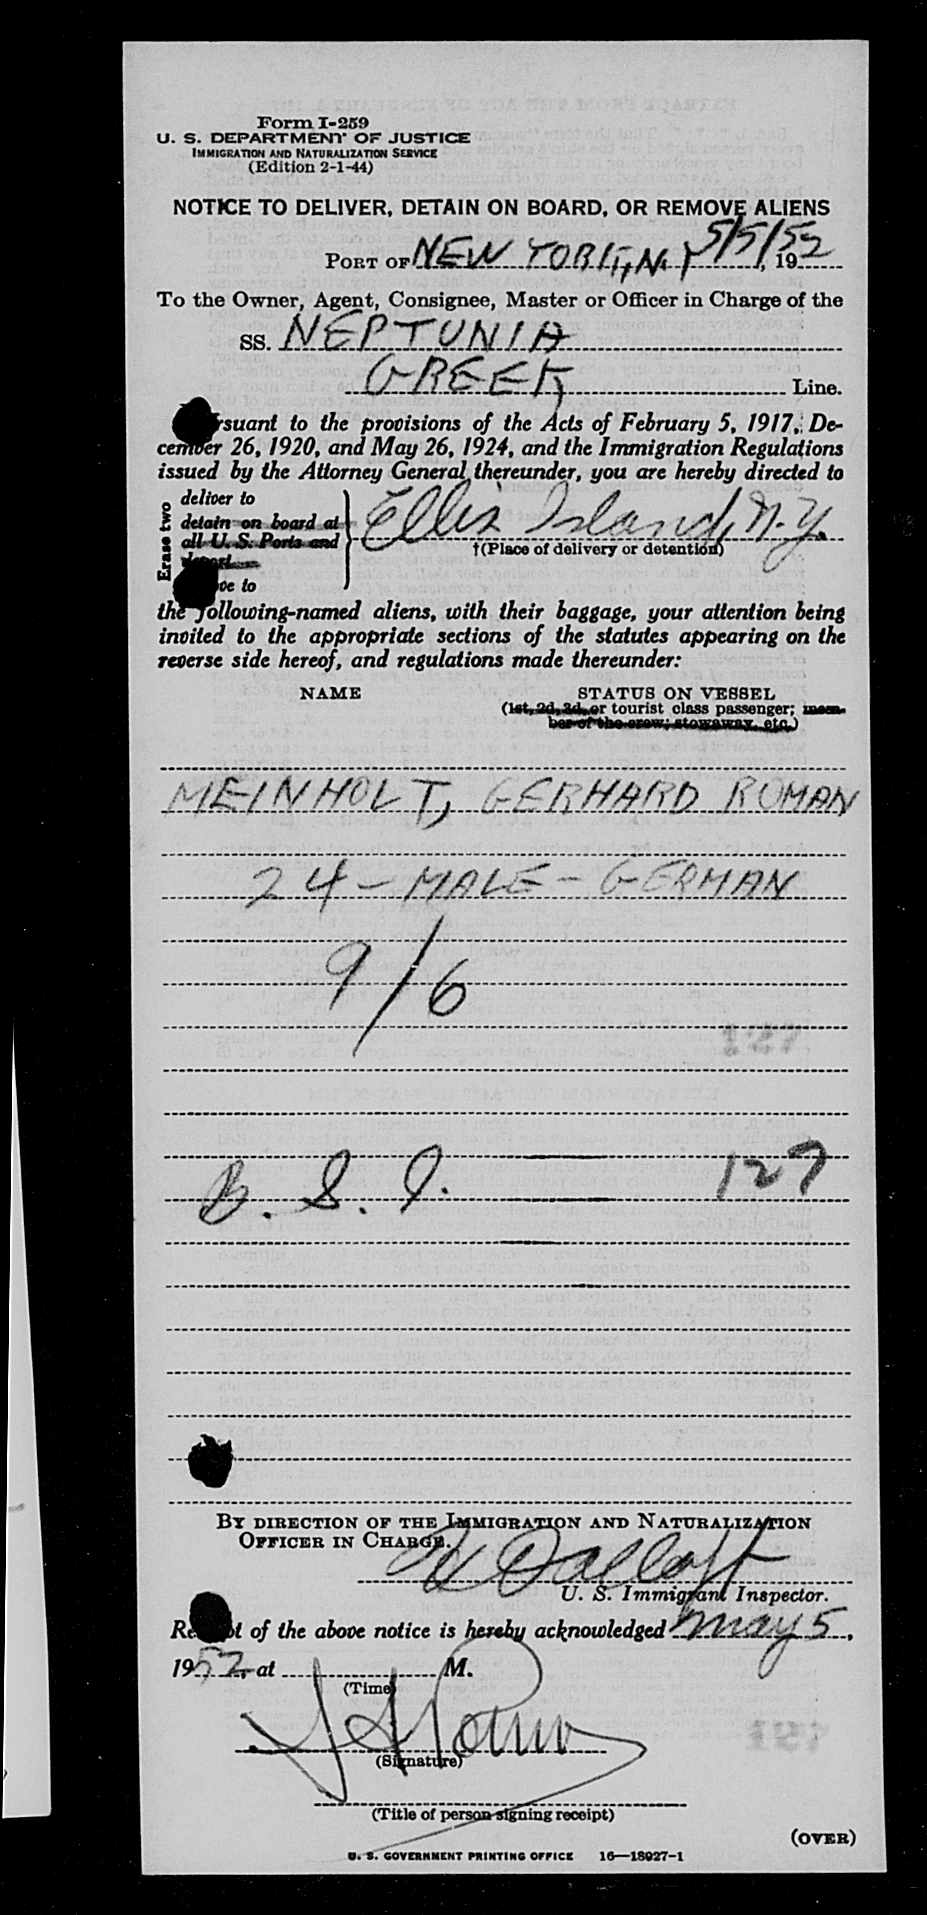 Form I-259
U. S. DEPARTMENT OF JUSTICE
IMMIGRATION AND NATURALIZATION SERVICE
(Edition 2-1-44)
NOTICE TO DELIVER, DETAIN ON BOARD, OR REMOVE ALIENS
PORT OF NEW YORK, N.Y. 5/5/, 1952
To the Owner, Agent, Consignee, Master or Officer in Charge of the
SS. NEPTUNIA
GREEK Line.
rsuant to the provisions of the Acts of February 5, 1917, De-
cember 26, 1920, and May 26, 1924, and the Immigration Regulations
issued by the Attorney General thereunder, you are hereby directed to
Erase two
deliver to
detain on board at
all U. S. Ports and
deport
ve to
Ellis Island, N.Y.
†(Place of delivery or detention)
the following-named aliens, with their baggage, your attention being
invited to the appropriate sections of the statutes appearing on the
reverse side hereof, and regulations made thereunder:
NAME STATUS ON VESSEL
(1st, 2d, 3d, or tourist class passenger; mem-
ber of the crew; stowaway, etc.)
MEINHOLT, GERHARD ROMAN
24 - MALE - GERMAN
9/6
127
B. S. I. 127
BY DIRECTION OF THE IMMIGRATION AND NATURALIZATION
OFFICER IN CHARGE.
U. S. Immigrant Inspector.
Re t of the above notice is hereby acknowledged May 5,
1952, at M.
(Time)
(Signature)
(Title of person signing receipt)
(OVER)
U. S. GOVERNMENT PRINTING OFFICE 16—18927-1